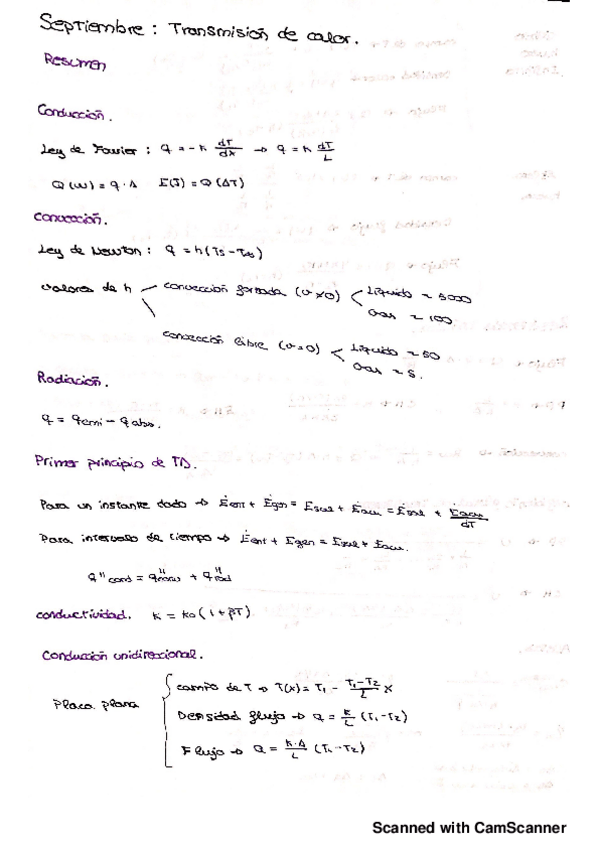 Septiembre : Transmisión de calor.
Resumen
Conducción.
Ley de Fourier : q = -k dT/dx → q = k dT/L
Q(W) = q·A E(J) = Q(ΔT)
Convección.
Ley de Newton : q = h(Ts-T∞)
valores de h
convección forzada (v≠0)
Líquido ≈ 5000
Gas ≈ 100.
convección libre (v=0)
Líquido ≈ 50
Gas ≈ 5.
Radiación.
q = qemi - qabs.
Primer principio de TD.
Para un instante dado → Ėent + Ėgen = Ėsal + Ėacu = Ėsal + Eacu/dT
Para intervalo de tiempo → Eent + Egen = Esal + Eacu.
q"cond = q"conv + q"rad
conductividad. k = k0(1+βT)
Conducción unidireccional.
Placa plana
campo de T → T(x) = T1 - T1-T2/L x
Densidad flujo → q = k/L (T1-T2)
Flujo → Q = k·A/L (T1-T2)
Scanned with CamScanner